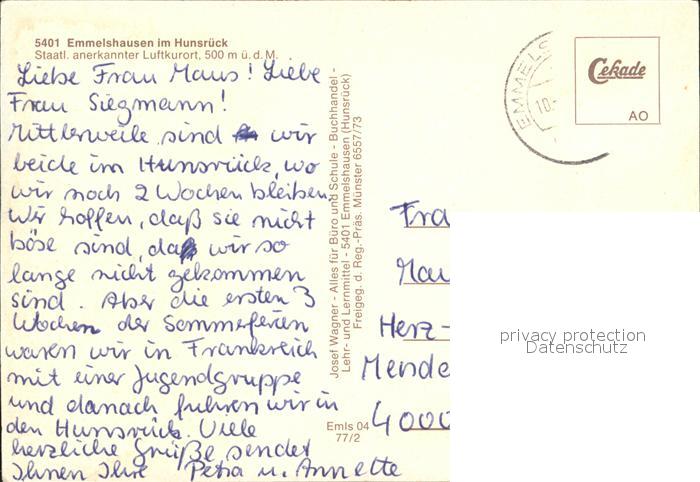 5401 Emmelshausen im Hunsrück
Staatl. anerkannter Luftkurort, 500 m ü. d. M.
Liebe Frau Maus! Liebe
Frau Siegmann!
Mittlerweile sind wir
beide im Hunsrück, wo
wir noch 2 Wochen bleiben.
Wir hoffen, daß sie nicht
böse sind, daß wir so
lange nicht gekommen
sind. Aber die ersten 3
Wochen der Sommerferien
waren wir in Frankreich
mit einer Jugendgruppe
und danach fuhren wir in
den Hunsrück. Viele
herzliche Grüße sendet
Ihnen Ihre Petra u. Annette
Josef Wagner - Alles für Büro und Schule - Buchhandel -
Lehr- und Lernmittel - 5401 Emmelshausen (Hunsrück)
Freigeg. d. Reg.-Präs. Münster 6557/73
Emls 04
77/2
EMMELS
10.
Cekade
AO
Fra
Mau
Herz-
Mende
4000
privacy protection
Datenschutz